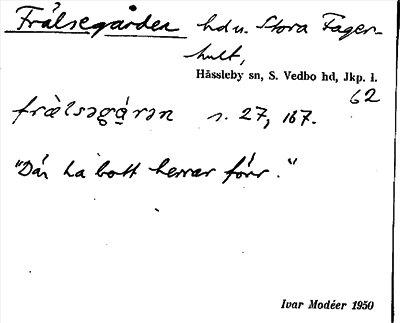 Frälsegården hdn. Stora Fager-
hult,
Hässleby sn, S. Vedbo hd, Jkp. l.
62
fræ̀lsəgɑ̣́rən s. 27, 167.
"Där ha bott herrar förr."
Ivar Modéer 1950